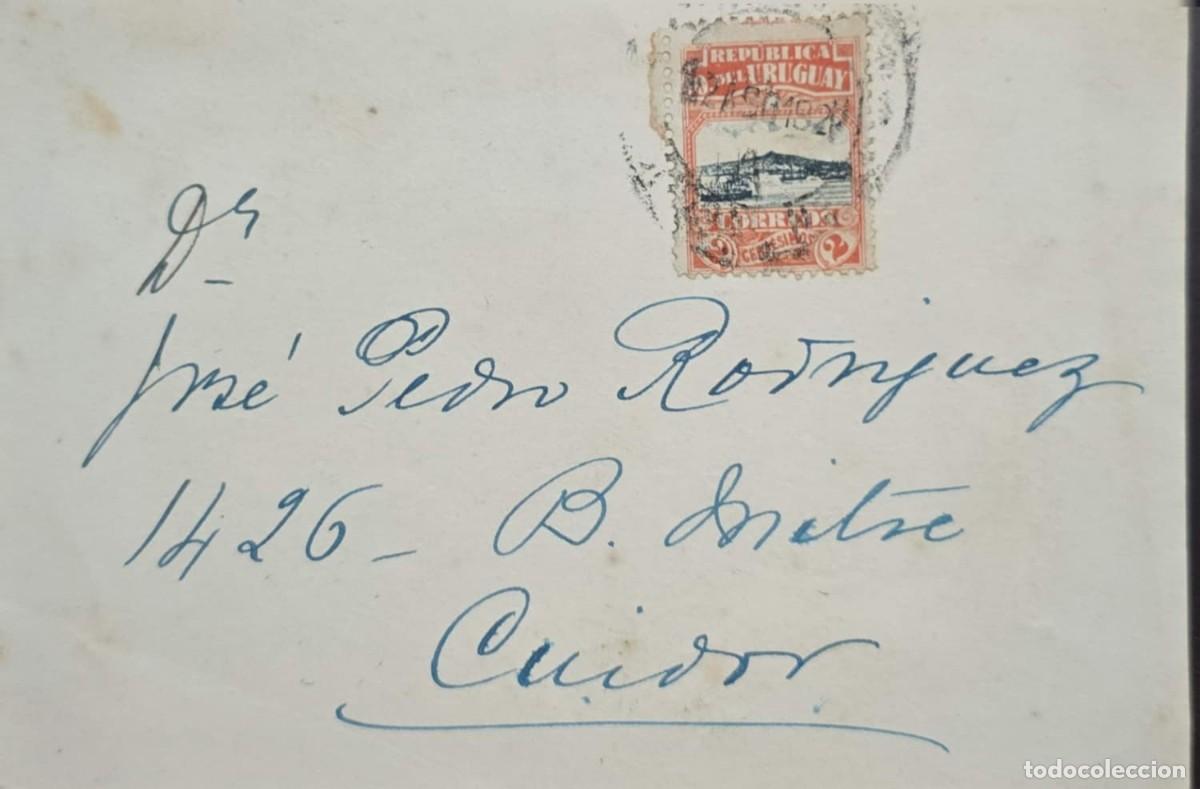 REPUBLICA
DEL URUGUAY
CORREOS
2 CENTESIMOS 2
Dr
José Pedro Rodriguez
1426 - B. Mitre
todocoleccion